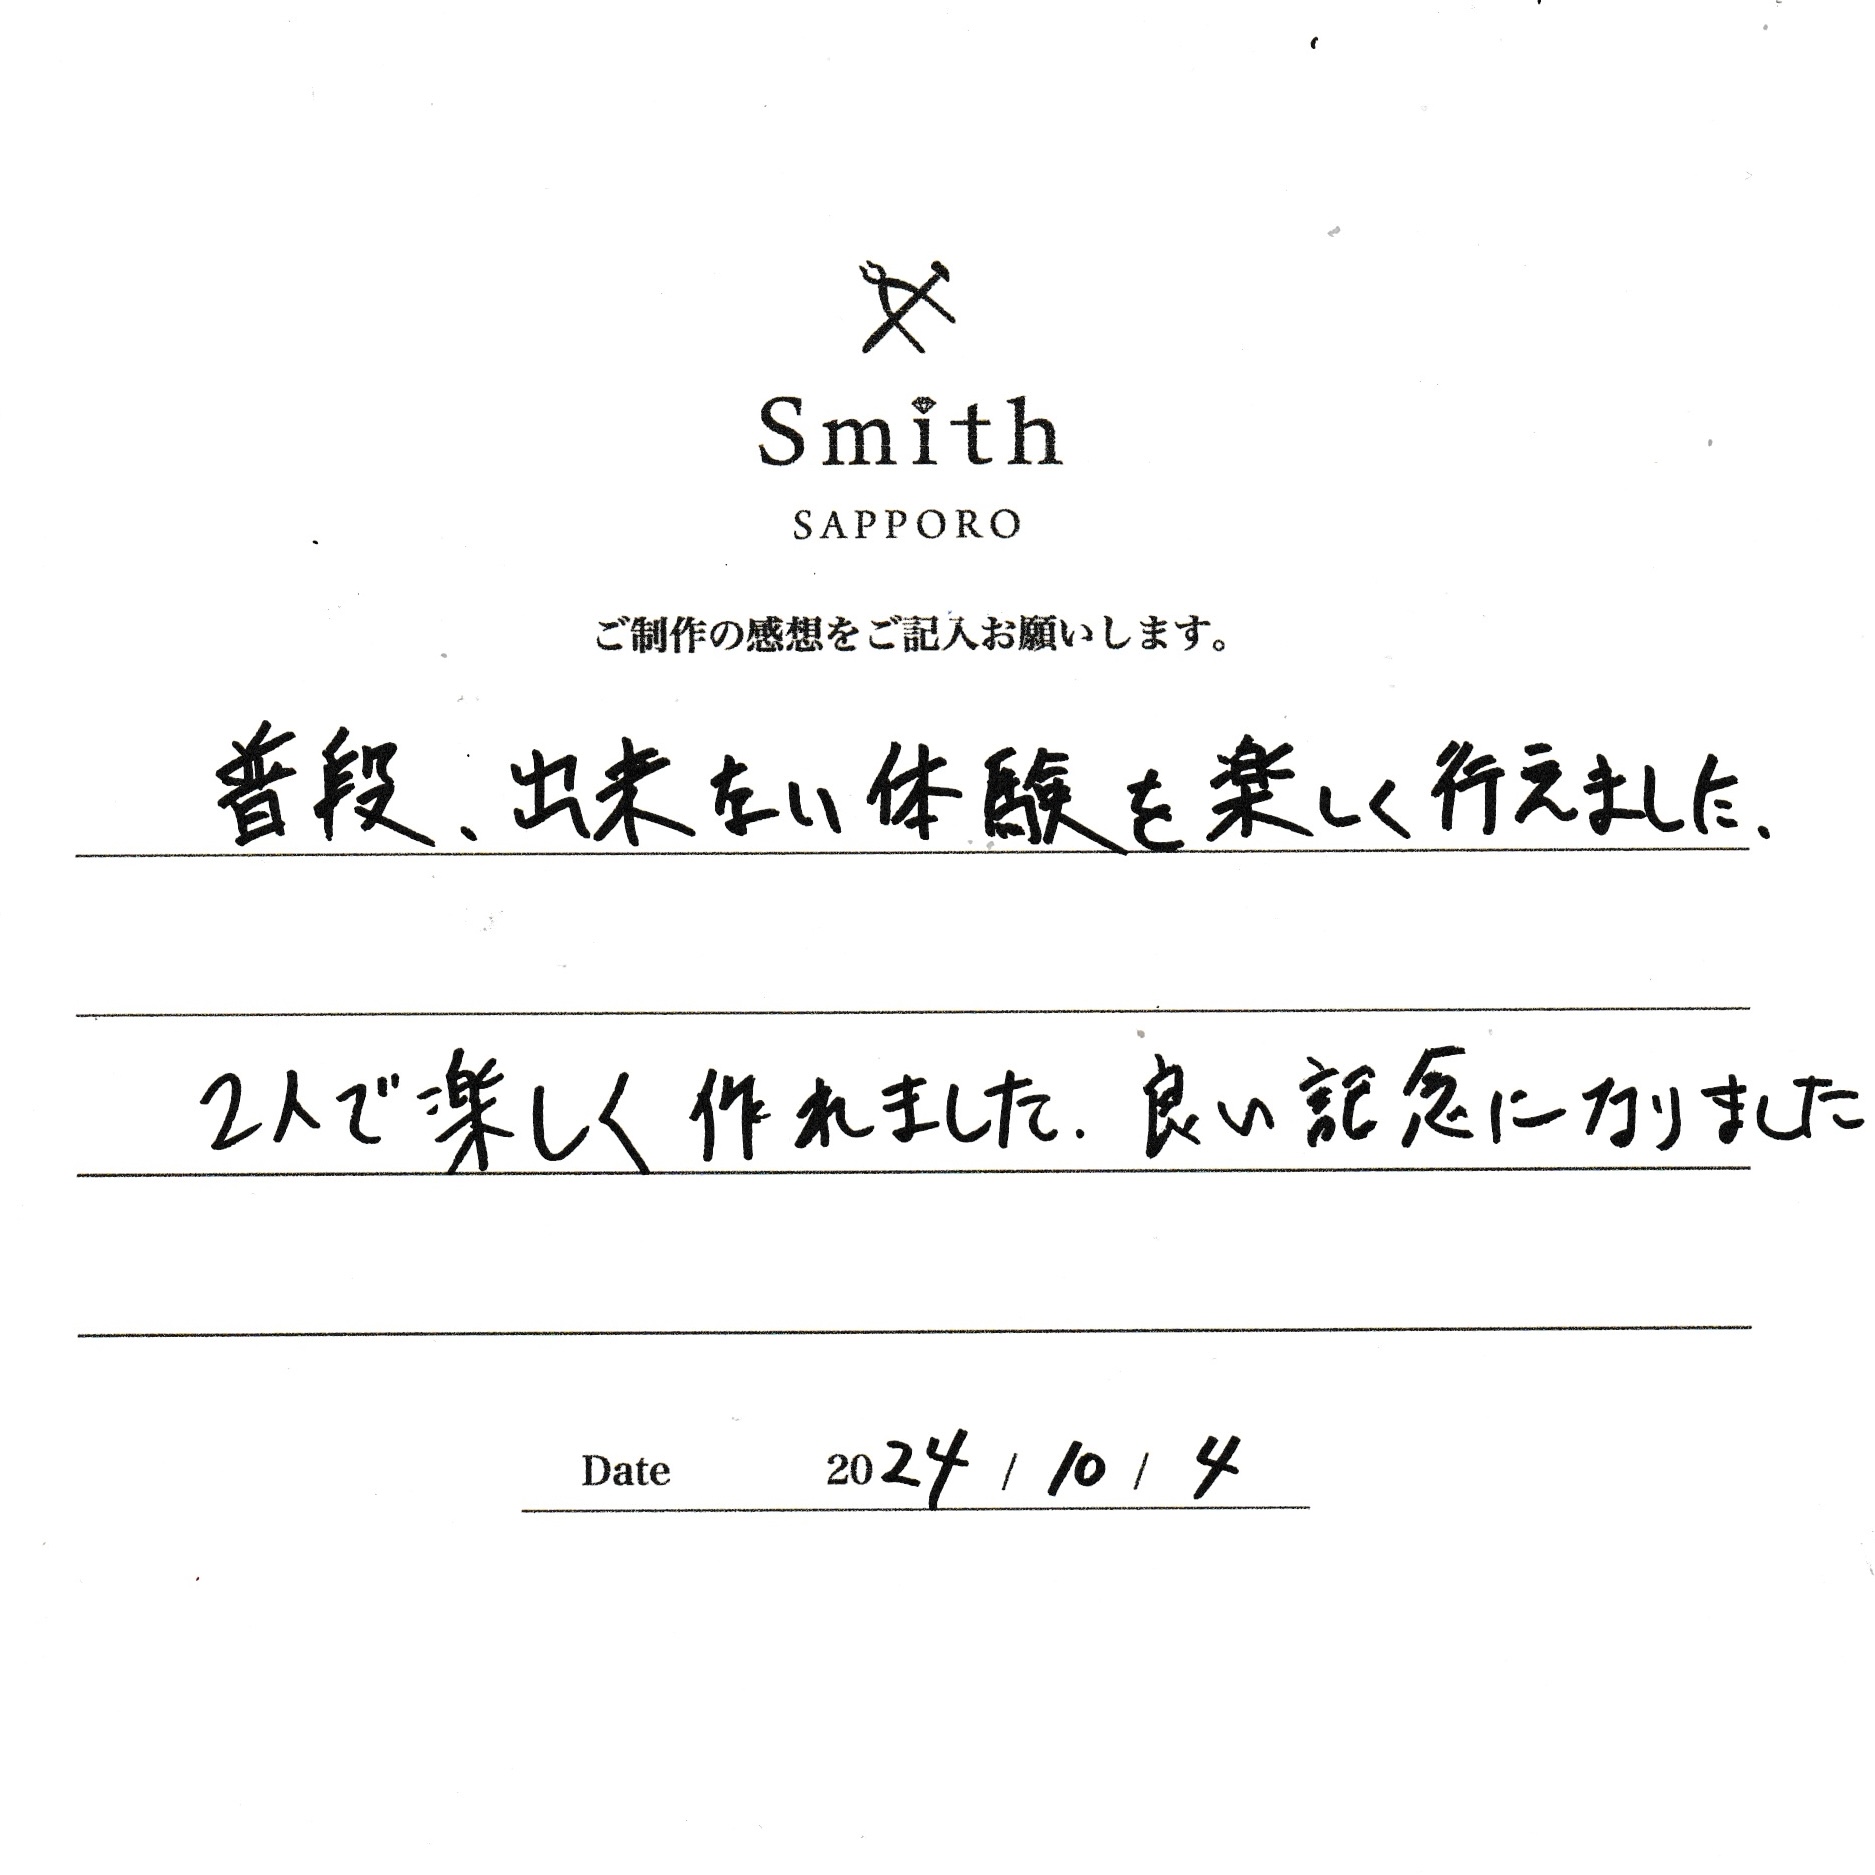 Smith
SAPPORO
ご制作の感想をご記入お願いします。
普段、出来ない体験を楽しく行えました、
2人で楽しく作れました. 良い記念になりました
Date 2024 / 10 / 4